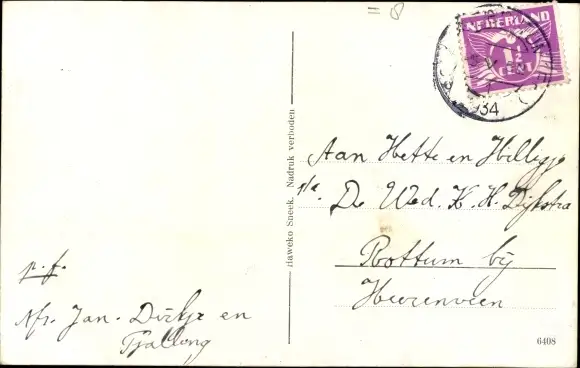 NEDERLAND
1½
CENT
1934
Aan Hette en Hilligje
p/a. De Wed. K. H. Dijkstra
Rottum bij
Heerenveen
p.f.
Afz. Jan - Dirkje en
Tjalling
Haweko Sneek. Nadruk verboden
6408